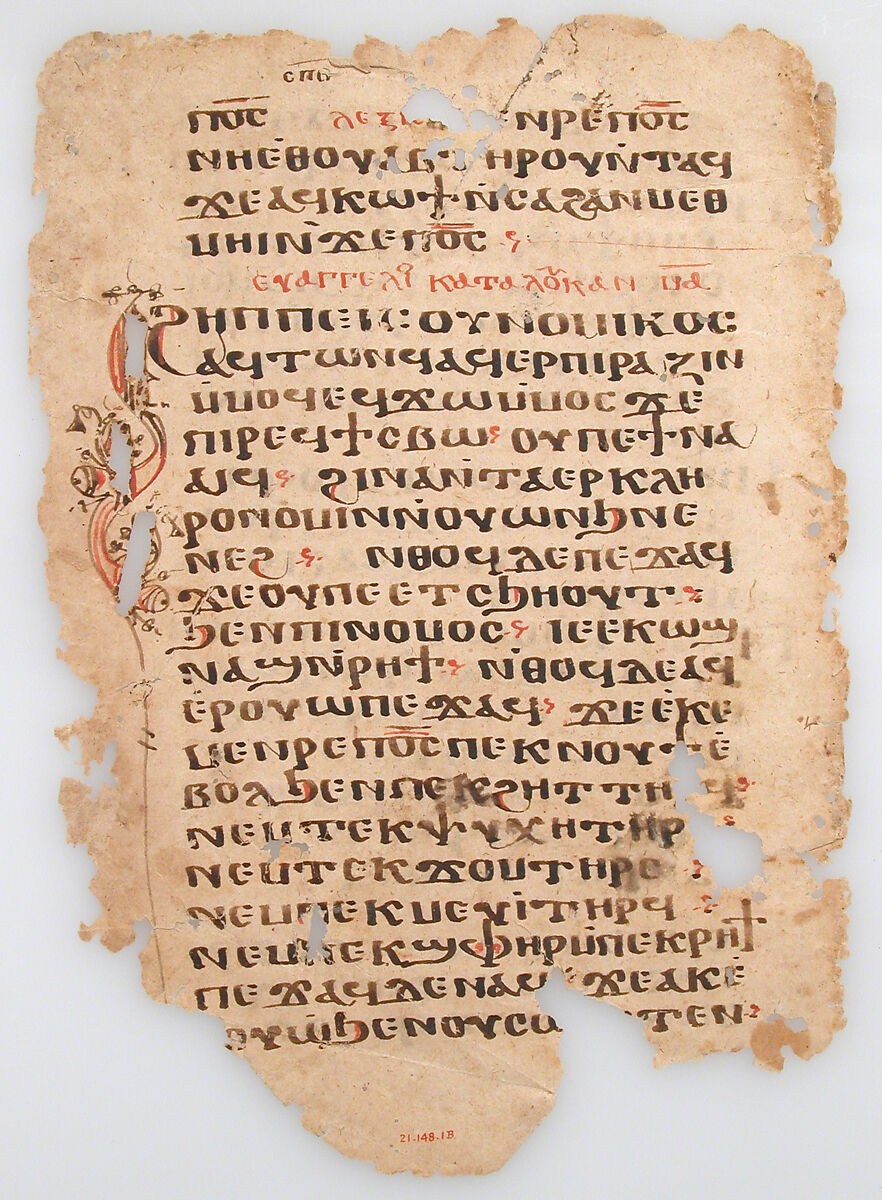 ⲥⲡⲃ
ⲡⲟ̅ⲥ̅ ⲗⲉⲝⲓ ⲛⲣⲉⲡⲟ̅ⲥ̅
ⲛⲏⲉⲑⲟⲩⲁⲃ ⲧⲏⲣⲟⲩⲛ̀ⲧⲁϥ
ϫⲉⲁϥⲕⲱϯⲛ̀ⲥⲁϩⲁⲛⲙⲉⲑ
ⲙⲏⲓⲛ̀ϫⲉⲡⲟ̅ⲥ̅
ⲉⲩⲁⲅⲅⲉⲗⲓ ⲕⲁⲧⲁⲗⲟⲩⲕⲁⲛ ⲙ̅ⲁ̅
ϩⲏⲡⲡⲉⲓⲥⲟⲩⲛⲟⲙⲓⲕⲟⲥ
ⲁϥⲧⲱⲛϥⲁϥⲉⲣⲡⲓⲣⲁⲍⲓⲛ
ⲙ̀ⲙⲟϥⲉϥϫⲱⲙ̀ⲙⲟⲥ ϫⲉ
ⲡⲓⲣⲉϥϯⲥⲃⲱ ⲟⲩⲡⲉϯⲛⲁ
ⲁⲓϥ ϩⲓⲛⲁⲛ̀ⲧⲁⲉⲣⲕⲗⲏ
ⲣⲟⲛⲟⲙⲓⲛ̀ⲛⲟⲩⲱⲛϧⲛⲉ
ⲛⲉϩ ⲛⲑⲟϥⲇⲉⲡⲉϫⲁϥ
ϫⲉⲟⲩⲡⲉⲉⲧⲥϧⲏⲟⲩⲧ
ϧⲉⲛⲡⲓⲛⲟⲙⲟⲥ ⲓⲉⲉⲕⲱϣ
ⲛⲁϣⲛ̀ⲣⲏϯ ⲛ̀ⲑⲟϥⲇⲉⲁϥ
ⲉ̀ⲣⲟⲩⲱⲡⲉϫⲁϥ ϫⲉⲉ̀ⲕⲉ
ⲙⲉⲛⲣⲉⲡⲟ̅ⲥ̅ⲡⲉⲕⲛⲟⲩϯⲉ̀
ⲃⲟⲗϧⲉⲛⲡⲉⲕϩⲏⲧⲧⲏⲣϥ
ⲛⲉⲙⲧⲉⲕⲯⲩⲭⲏⲧⲏⲣ
ⲛⲉⲙⲧⲉⲕϫⲟⲙⲧⲏⲣⲥ
ⲛⲉⲙⲡⲉⲕⲙⲉⲩⲓ̀ⲧⲏⲣϥ
ⲛⲉⲙⲡⲉⲕϣⲫⲏⲣⲙ̀ⲡⲉⲕⲣⲏϯ
ⲡⲉϫⲁϥⲇⲉⲛⲁϥ ϫⲉⲁⲕⲉ̀
ⲟⲩⲱ̀ϧⲉⲛⲟⲩⲥⲱ ⲧⲉⲛ
21.148.1B